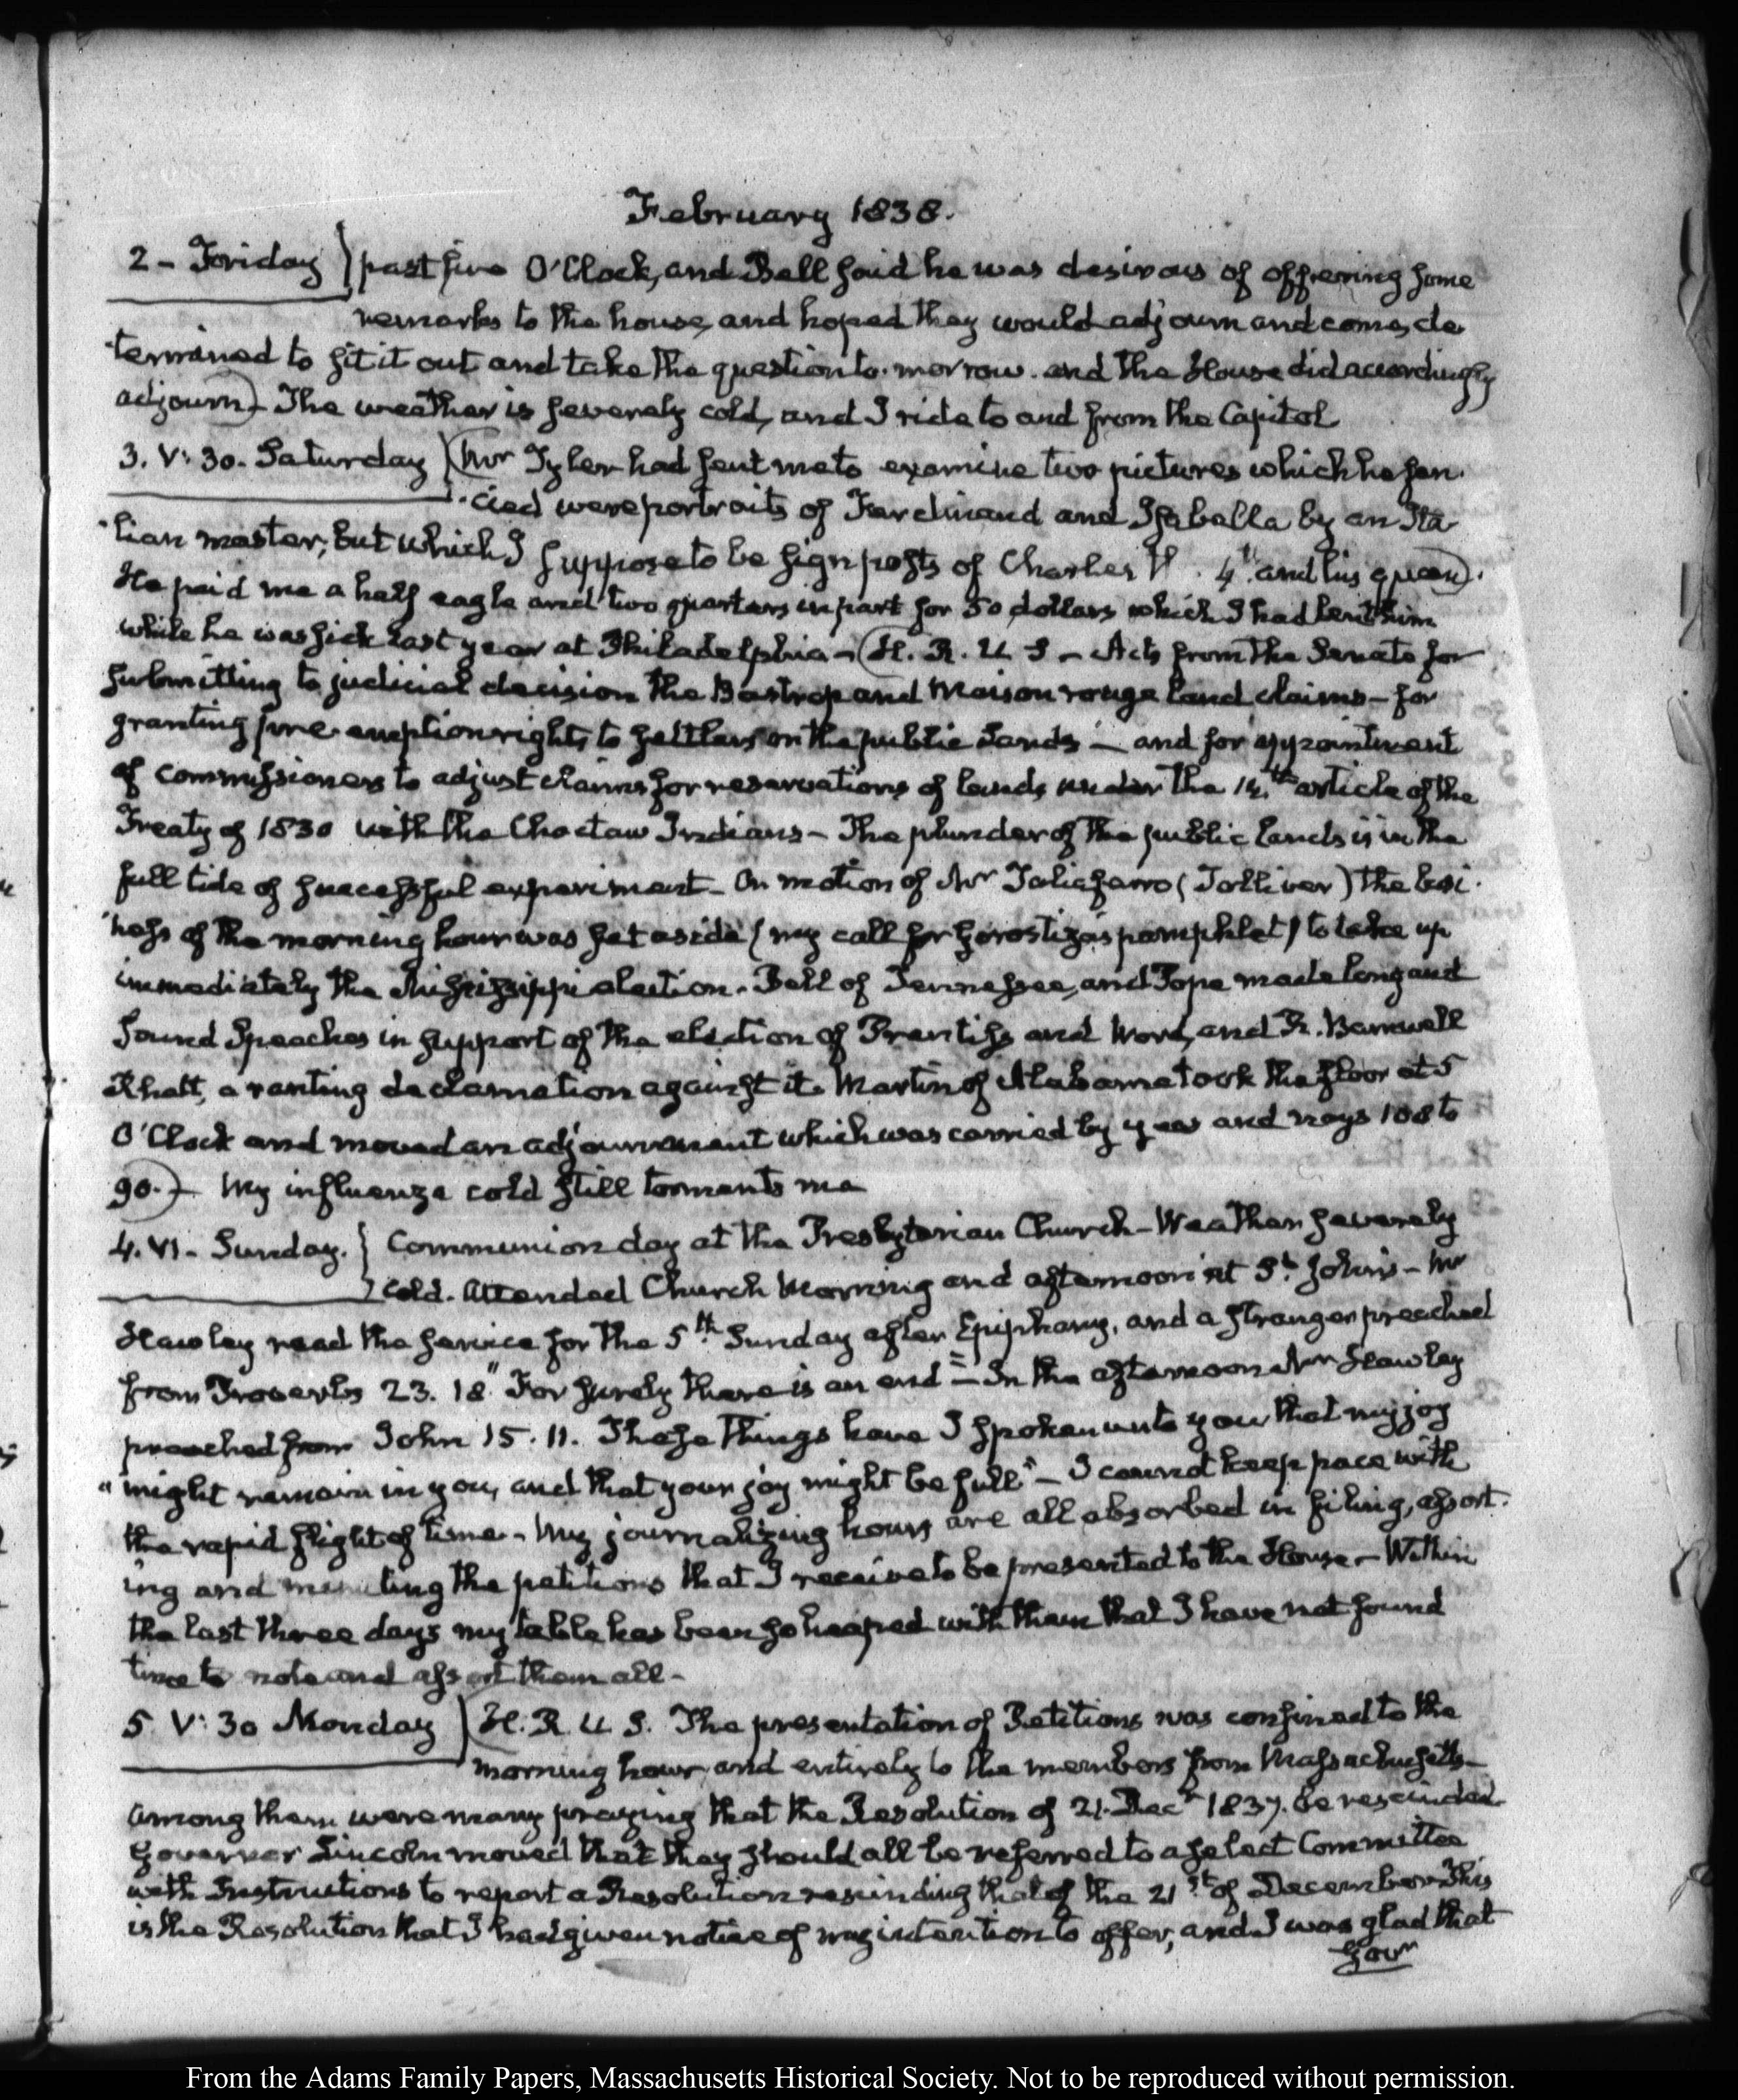 February 1838.
2 - Friday } past five O'Clock, and Bell said he was desirous of offering some
remarks to the house, and hoped they would adjourn and come, de
termined to sit it out and take the question to-morrow. and the House did accordingly
adjourn) - The weather is severely cold, and I ride to and from the Capitol
3. V: 30. Saturday } (Mr Tyler had sent me to examine two pictures which he fan-
-cied were portraits of Ferdinand and Isabella by an Ita
-lian master; but which I suppose to be sign posts of Charles 4th and his queen).
He paid me a half eagle and two quarters in part for 50 dollars which I had lent him
while he was sick last year at Philadelphia - (H. R. U S - Acts from the Senate for
submitting to judicial decision the Bastrop and Maison rouge land claims - for
granting pre-emption rights to settlers on the public Lands - and for appointment
of commissioners to adjust claims for reservations of lands under the 14th article of the
Treaty of 1830 with the Choctaw Indians - The plunder of the public lands is in the
full tide of successful experiment - On motion of Mr Taliaferro (Tolliver) the busi-
-ness of the morning hour was set aside (my call for Gorostiza's pamphlet) to take up
immediately the Mississippi election. Bell of Tennessee, and Pope made long and
sound Speeches in support of the election of Prentiss and Word, and R. Barnwell
Rhett, a ranting declamation against it. Martin of Alabama took the floor at 5
O'Clock and moved an adjournment which was carried by yeas and nays 108 to
90.) - My influenza cold still torments me
4. VI - Sunday. } Communion day at the Presbyterian Church - Weather severely
cold. Attended Church Morning and afternoon at St. John's - Mr
Hawley read the service for the 5th Sunday after Epiphany, and a stranger preached
from Proverbs 23. 18 "For surely there is an end" - In the afternoon Mr Hawley
preached from John 15. 11. These things have I spoken unto you, that my joy
"might remain in you, and that your joy might be full" - I cannot keep pace with
the rapid flight of time - My journalizing hours are all absorbed in filing, assort-
ing and minuting the petitions that I receive to be presented to the House - Within
the last three days my table has been so heaped with them that I have not found
time to note and assort them all -
5 V: 30 Monday } (H. R. U S. The presentation of Petitions was confined to the
morning hour, and entirely to the members from Massachusetts -
Among them were many praying that the Resolution of 21. Decr 1837. be rescinded
Governor Lincoln moved that they should all be referred to a select Committee
with Instructions to report a Resolution rescinding that of the 21st of December This
is the Resolution that I had given notice of my intention to offer, and I was glad that
Govr
From the Adams Family Papers, Massachusetts Historical Society. Not to be reproduced without permission.